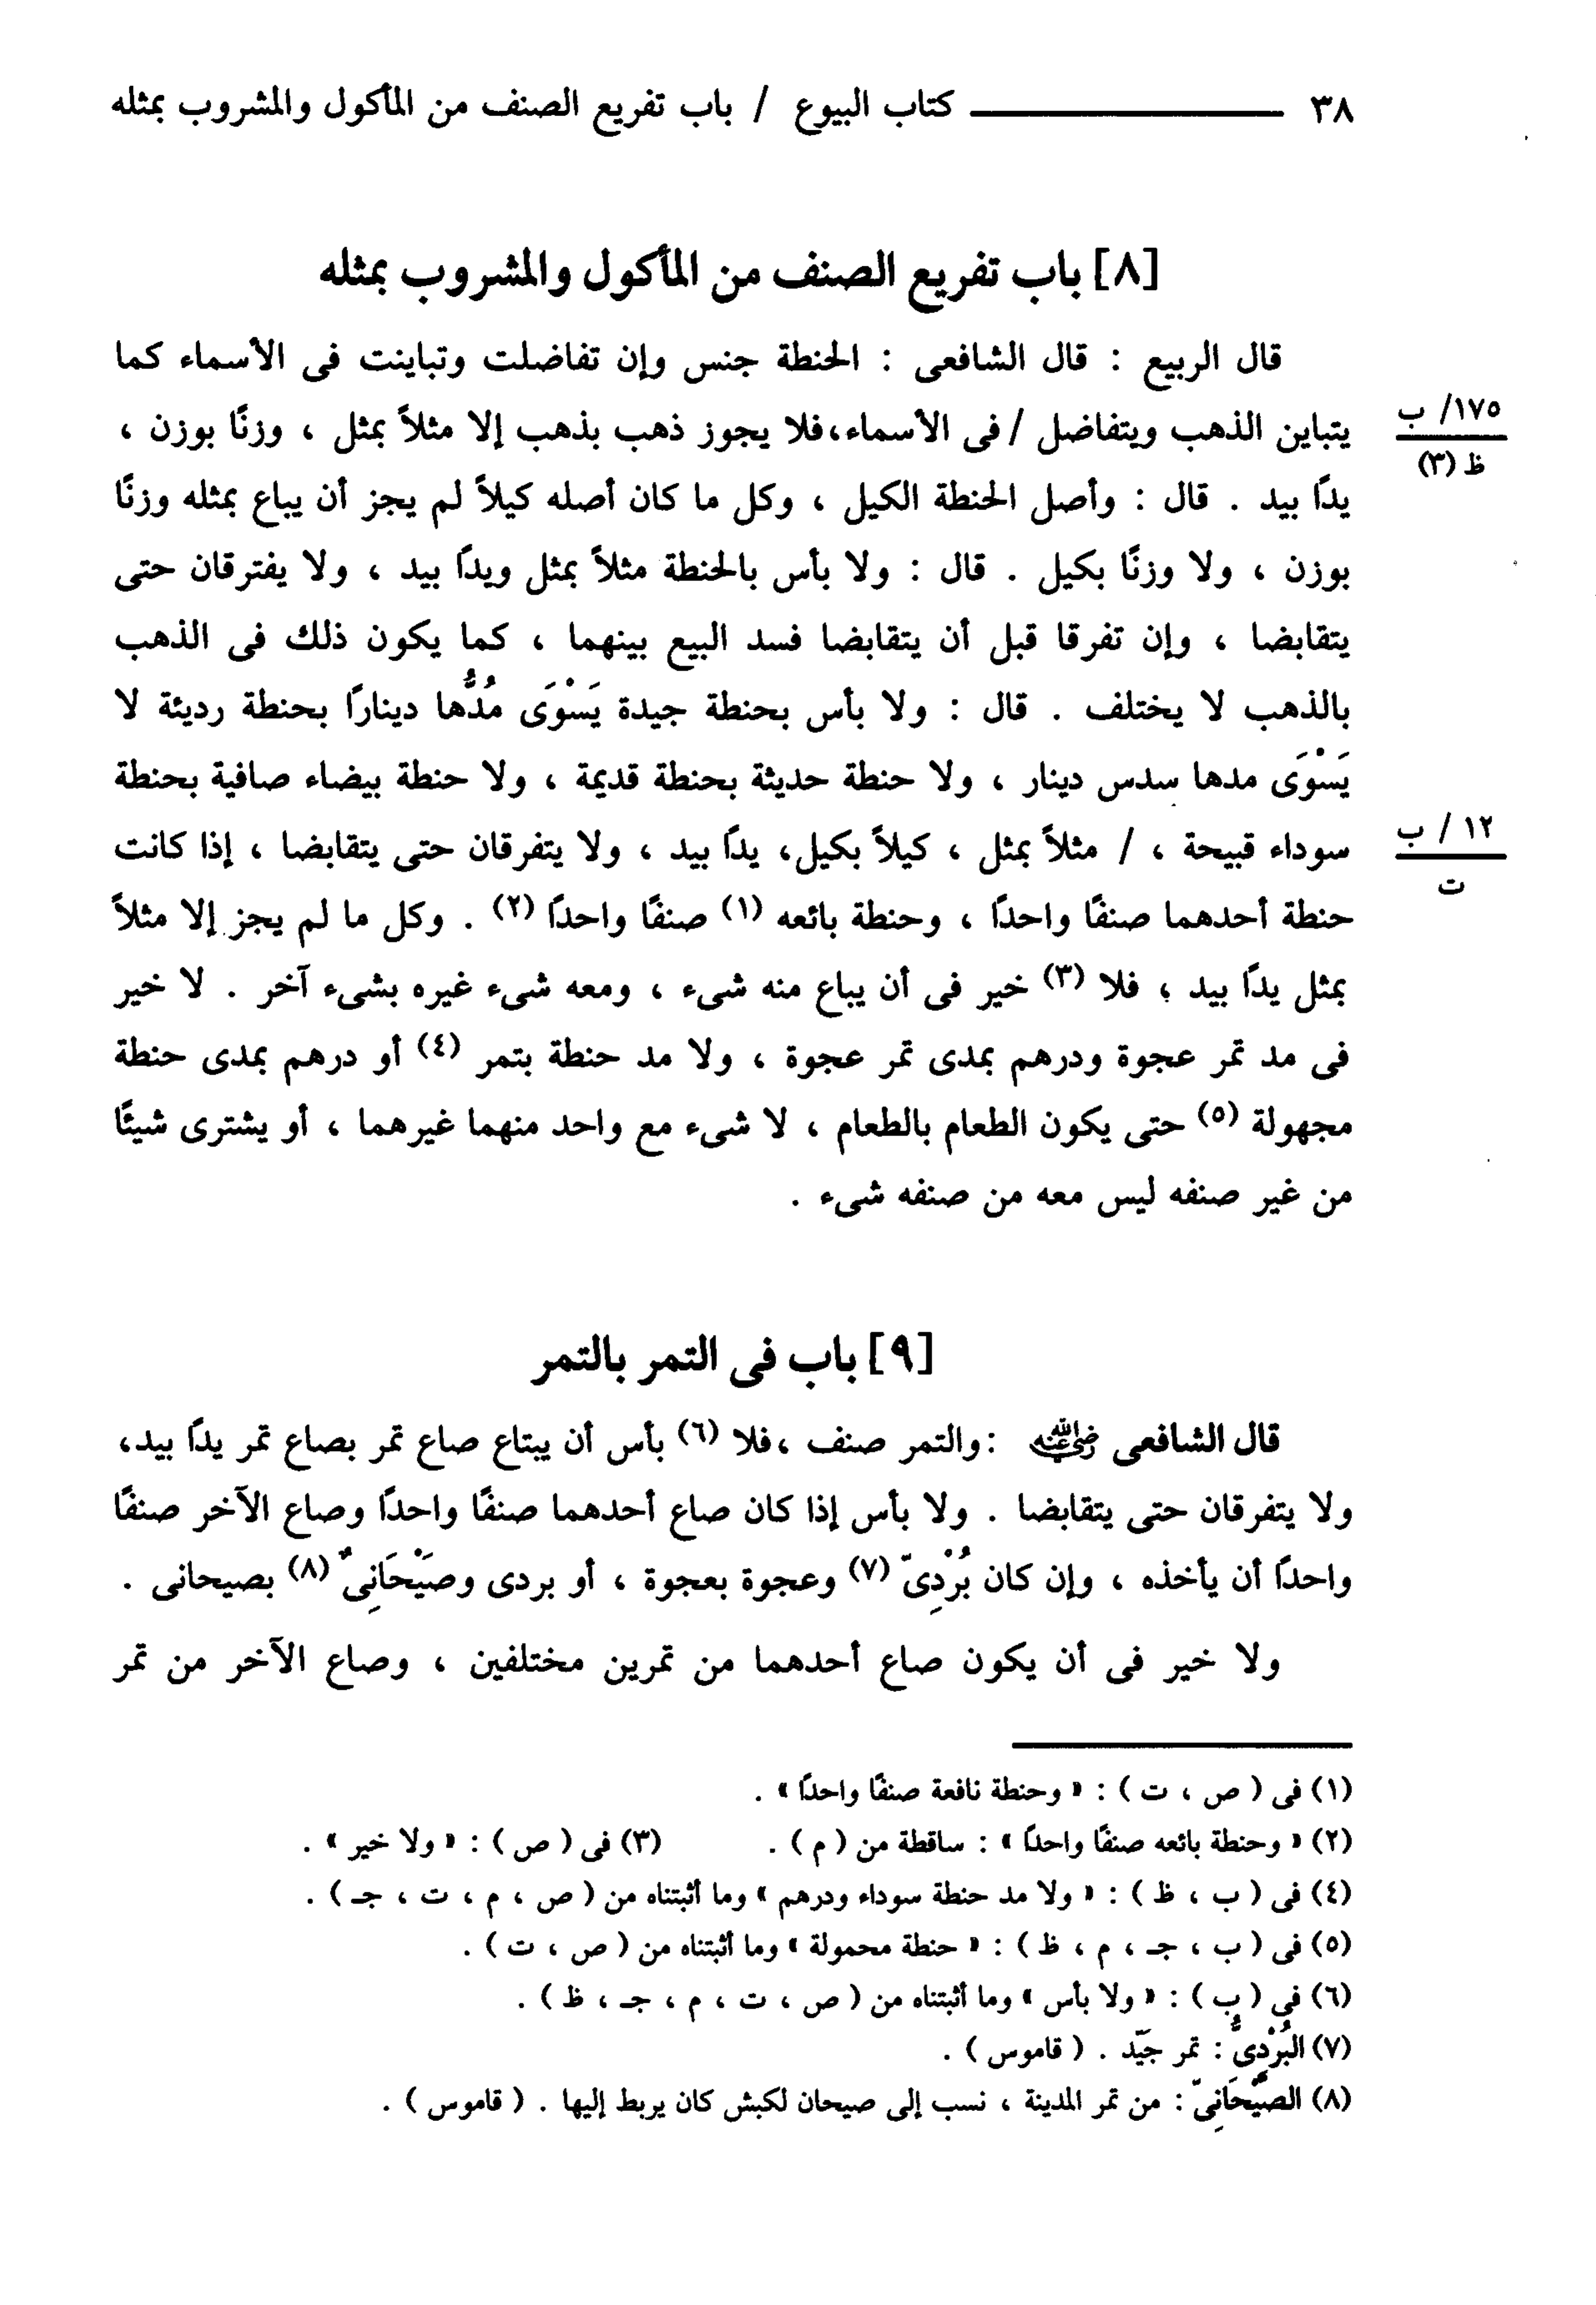 ٣٨ ــــــــــــــــ كتاب البيوع / باب تفريع الصنف من المأكول والمشروب بمثله
[٨] باب تفريع الصنف من المأكول والمشروب بمثله
قال الربيع : قال الشافعى : الحنطة جنس وإن تفاضلت وتباينت فى الأسماء كما
١٧٥/ ب
ظ (٣)
يتباين الذهب ويتفاضل / فى الأسماء،فلا يجوز ذهب بذهب إلا مثلاً بمثل ، وزنًا بوزن ،
يدًا بيد . قال : وأصل الحنطة الكيل ، وكل ما كان أصله كيلاً لم يجز أن يباع بمثله وزنًا
بوزن ، ولا وزنًا بكيل . قال : ولا بأس بالحنطة مثلاً بمثل ويدًا بيد ، ولا يفترقان حتى
يتقابضا ، وإن تفرقا قبل أن يتقابضا فسد البيع بينهما ، كما يكون ذلك فى الذهب
بالذهب لا يختلف . قال : ولا بأس بحنطة جيدة يَسْوَى مُدُّها دينارًا بحنطة رديئة لا
يَسْوَى مدها سدس دينار ، ولا حنطة حديثة بحنطة قديمة ، ولا حنطة بيضاء صافية بحنطة
١٢ / ب
ت
سوداء قبيحة ، / مثلاً بمثل ، كيلاً بكيل، يدًا بيد ، ولا يتفرقان حتى يتقابضا ، إذا كانت
حنطة أحدهما صنفًا واحدًا ، وحنطة بائعه (١) صنفًا واحدًا (٢) . وكل ما لم يجز إلا مثلاً
بمثل يدًا بيد ، فلا (٣) خير فى أن يباع منه شىء ، ومعه شىء غيره بشىء آخر . لا خير
فى مد تمر عجوة ودرهم بمدى تمر عجوة ، ولا مد حنطة بتمر (٤) أو درهم بمدى حنطة
مجهولة (٥) حتى يكون الطعام بالطعام ، لا شىء مع واحد منهما غيرهما ، أو يشترى شيئًا
من غير صنفه ليس معه من صنفه شىء .
[٩] باب فى التمر بالتمر
قال الشافعى رضي الله عنه :والتمر صنف ،فلا (٦) بأس أن يبتاع صاع تمر بصاع تمر يدًا بيد،
ولا يتفرقان حتى يتقابضا . ولا بأس إذا كان صاع أحدهما صنفًا واحدًا وصاع الآخر صنفًا
واحدًا أن يأخذه ، وإن كان بُرْدِىّ (٧) وعجوة بعجوة ، أو بردى وصَيْحَانِىٌّ (٨) بصيحانى .
ولا خير فى أن يكون صاع أحدهما من تمرين مختلفين ، وصاع الآخر من تمر
(١) فى ( ص ، ت ) : « وحنطة نافعة صنفًا واحدًا » .
(٢) « وحنطة بائعه صنفًا واحدًا » : ساقطة من ( م ) . (٣) فى ( ص ) : « ولا خير » .
(٤) فى ( ب ، ظ ) : « ولا مد حنطة سوداء ودرهم » وما أثبتناه من ( ص ، م ، ت ، جـ ) .
(٥) فى ( ب ، جـ ، م ، ظ ) : « حنطة محمولة » وما أثبتناه من ( ص ، ت ) .
(٦) فى ( ب ) : « ولا بأس » وما أثبتناه من ( ص ، ت ، م ، جـ ، ظ ) .
(٧) البُرْدِىُّ : تمر جَيّد . ( قاموس ) .
(٨) الصَّيْحَانِىّ : من تمر المدينة ، نسب إلى صيحان لكبش كان يربط إليها . ( قاموس ) .